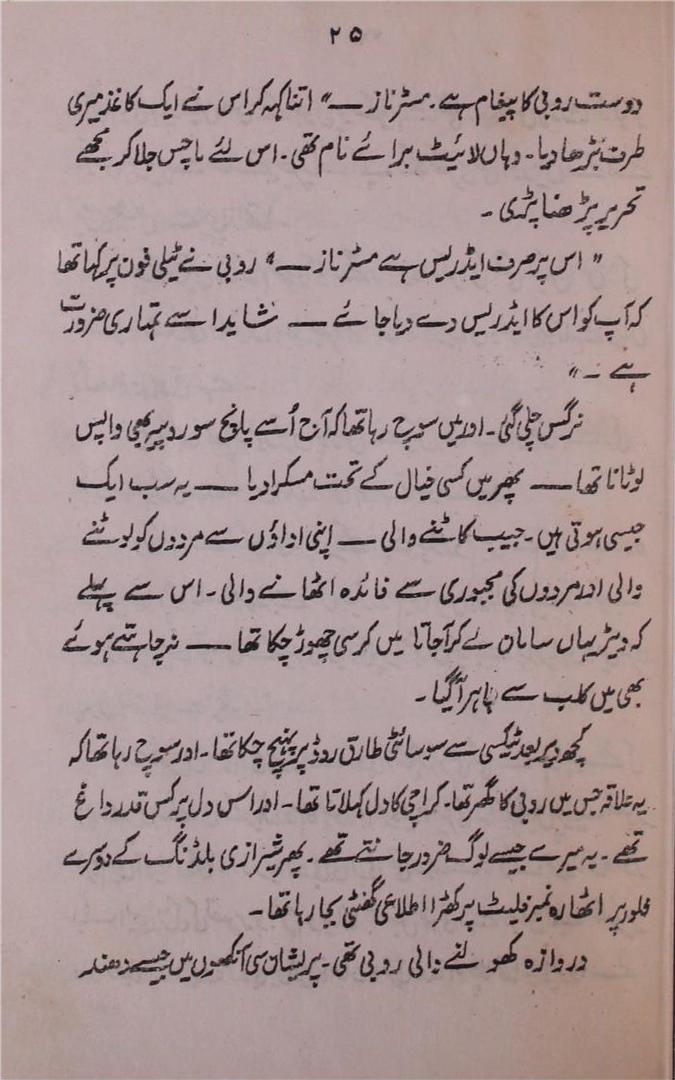 ۲۵
دوست روبی کا پیغام ہے۔ مسٹر ناز ــــ" اتنا کہہ کر اس نے ایک کاغذ میری
طرف بڑھا دیا۔ وہاں لائیٹ برائے نام تھی۔ اس لئے ماچس جلا کر مجھے
تحریر پڑھنا پڑی۔
" اس پر صرف ایڈریس ہے مسٹر ناز ــــ" روبی نے ٹیلی فون پر کہا تھا
کہ آپ کو اس کا ایڈریس دے دیا جائے ــــ شاید اسے تمہاری ضرورت
ہے ۔"
نرگس چلی گئی۔ اور میں سوچ رہا تھا کہ آج اُسے پانچ سو روپیہ بھی واپس
لوٹانا تھا ــــ پھر میں کسی خیال کے تحت مسکرا دیا ــــ یہ سب ایک
جیسی ہوتی ہیں۔ جیب کاٹنے والی ــــ اپنی اداؤں سے مردوں کو لوٹنے
والی اور مردوں کی مجبوری سے فائدہ اٹھانے والی۔ اس سے پہلے
کہ ویٹر یہاں سامان لے کر آجاتا میں کرسی چھوڑ چکا تھا ــــ نہ چاہتے ہوئے
بھی میں کلب سے باہر آ گیا۔
کچھ دیر بعد ٹیکسی سے سوسائٹی طارق روڈ پر پہنچ چکا تھا۔ اور سوچ رہا تھا کہ
یہ علاقہ جس میں روبی کا گھر تھا۔ کراچی کا دل کہلاتا تھا۔ اور اس دل پر کس قدر داغ
تھے۔ یہ میرے جیسے لوگ ضرور جانتے تھے۔ پھر شیرازی بلڈنگ کے دوسرے
فلور پر اٹھارہ نمبر فلیٹ پر کھڑا اطلاعی گھنٹی بجا رہا تھا۔
دروازہ کھولنے والی روبی تھی۔ پریشان سی آنکھوں میں جیسے دھند